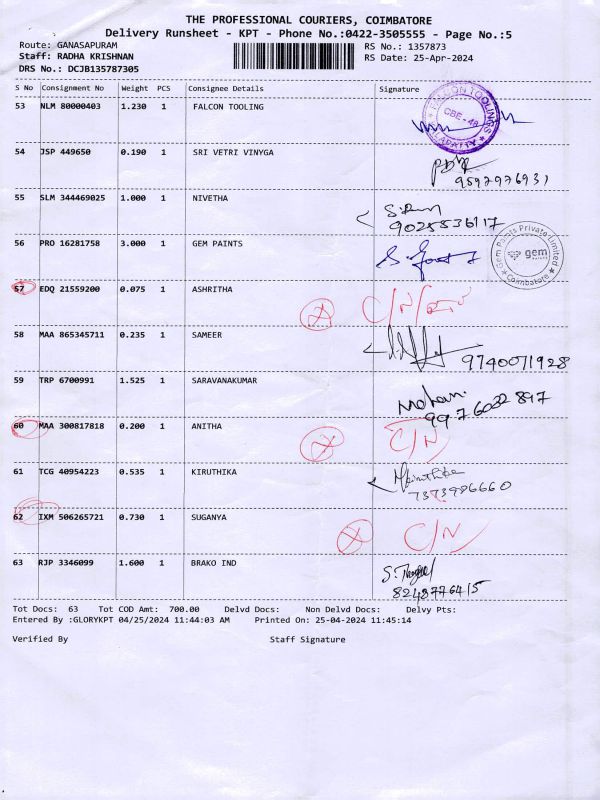 THE PROFESSIONAL COURIERS, COIMBATORE
Delivery Runsheet - KPT - Phone No.:0422-3505555 - Page No.:5
Route: GANASAPURAM
Staff: RADHA KRISHNAN
DRS No.: DCJB135787305
RS No.: 1357873
RS Date: 25-Apr-2024
S No Consignment No Weight PCS Consignee Details Signature
53 NLM 80000403 1.230 1 FALCON TOOLING
FALCON TOOLINGS
CBE - 48
54 JSP 449650 0.190 1 SRI VETRI VINYGA
9597976931
55 SLM 344469025 1.000 1 NIVETHA
9025536117
56 PRO 16281758 3.000 1 GEM PAINTS
Gem Paints Private Limited
gem
Coimbatore
57 EDQ 21559200 0.075 1 ASHRITHA
C/N/
58 MAA 865345711 0.235 1 SAMEER
9740071928
59 TRP 6700991 1.525 1 SARAVANAKUMAR
Mohan
9976032897
60 MAA 300817818 0.200 1 ANITHA
C/N
61 TCG 40954223 0.535 1 KIRUTHIKA
7373986660
62 IXM 506265721 0.730 1 SUGANYA
C/N
63 RJP 3346099 1.600 1 BRAKO IND
8248776415
Tot Docs: 63 Tot COD Amt: 700.00 Delvd Docs: Non Delvd Docs: Delvy Pts:
Entered By :GLORYKPT 04/25/2024 11:44:03 AM Printed On: 25-04-2024 11:45:14
Verified By Staff Signature